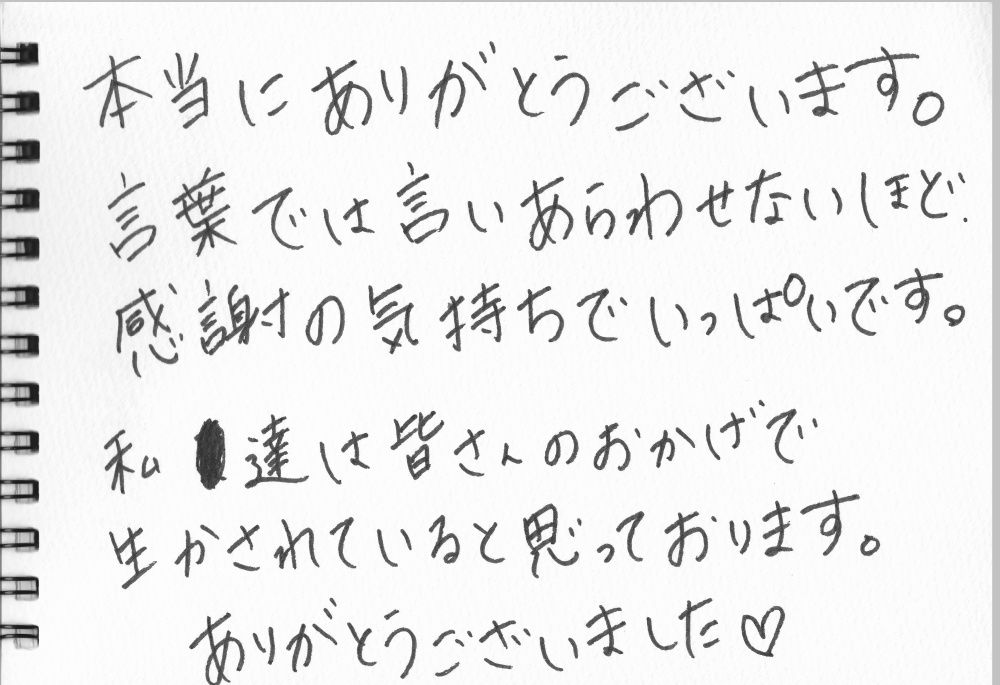 本当にありがとうございます。
言葉では言いあらわせないほど
感謝の気持ちでいっぱいです。
私達は皆さんのおかげで
生かされていると思っております。
ありがとうございました♡